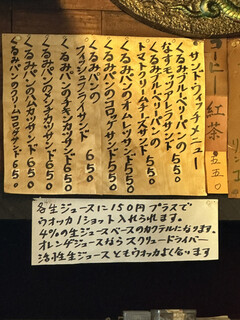 コーヒー
紅茶 五五〇
・サンドウィッチメニュー
くるみブルーベリーパンの
なすモッツァサンド 550
くるみブルーベリーパンの
スモーククリームチーズサンド 650
くるみパンのオムレツサンド 550
くるみパンのコロッケサンド 650
くるみパンの
フィッシュフライサンド 650
くるみパンのチキンカツサンド 650
くるみパンのメンチカツサンド 650
くるみパンのハムカツサンド 650
くるみパンのクリームコロッケサンド 650
各生ジュースに150円プラスで
ウオッカ1ショット入れられます。
4%の生ジュースベースのカクテルになります。
オレンヂジュースならスクリュードライバー
活性生ジュースともウオッカよく合います